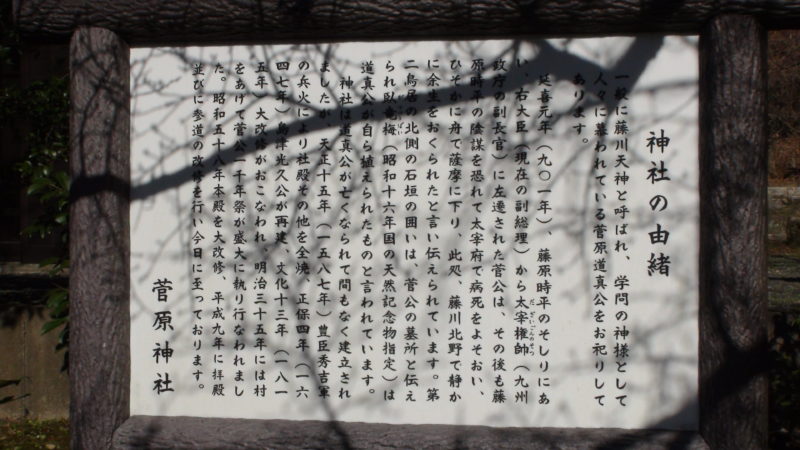 神社の由緒
一般に藤川天神と呼ばれ、学問の神様として
人々に慕われている菅原道真公をお祀りして
あります。
延喜元年(九〇一年)、藤原時平のそしりにあ
い、右大臣(現在の副総理)から太宰権帥(九州
政府の副長官)に左遷された菅公は、その後も藤
原時平の陰謀を恐れて太宰府で病死をよそおい、
ひそかに舟で薩摩に下り、此処、藤川北野で静か
に余生をおくられたと言い伝えられています。第
二鳥居の北側の石垣の囲いは、菅公の墓所と伝え
られ臥竜梅(昭和十六年国の天然記念物指定)は
道真公が自ら植えられたものと言われています。
神社は道真公が亡くなられて間もなく建立され
ましたが、天正十五年(一五八七年)豊臣秀吉軍
の兵火により社殿その他を全焼、正保四年(一六
四七年)島津光久公が再建、文化十三年(一八一
五年)大改修がおこなわれ、明治三十五年には村
をあげて菅公一千年祭が盛大に執り行なわれまし
た。昭和五十八年本殿を大改修、平成九年に拝殿
並びに参道の改修を行い今日に至っております。
菅原神社